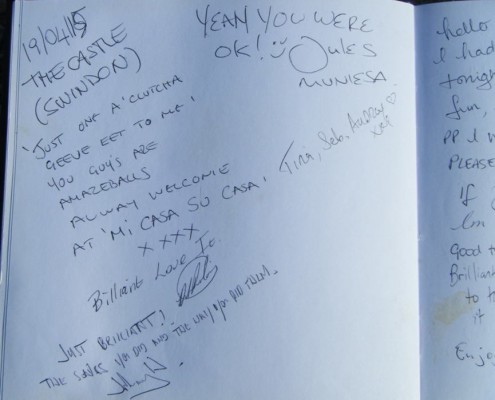 19/04/15
THE CASTLE
(SWINDON)
YEAH YOU WERE
OK! Jules
MUNIESA.
'JUST ONE A'CLUTCHA
GEEVE EET TO ME'!
YOU GUY'S ARE
AMAZEBALLS
ALWAY WELCOME
AT 'MI CASA SU CASA'!
Tina, Seb, Audray ♡
xxx
X XXX
Brilliant Love Jo.
JUST BRILLIANT!
THE SONGS YOU DID AND THE WAY YOU DID THEM.
hello
I had
tonight
fun,
PP I w
PLEASE
If
I'm
Good
Brilliant
to t
it
Enjo